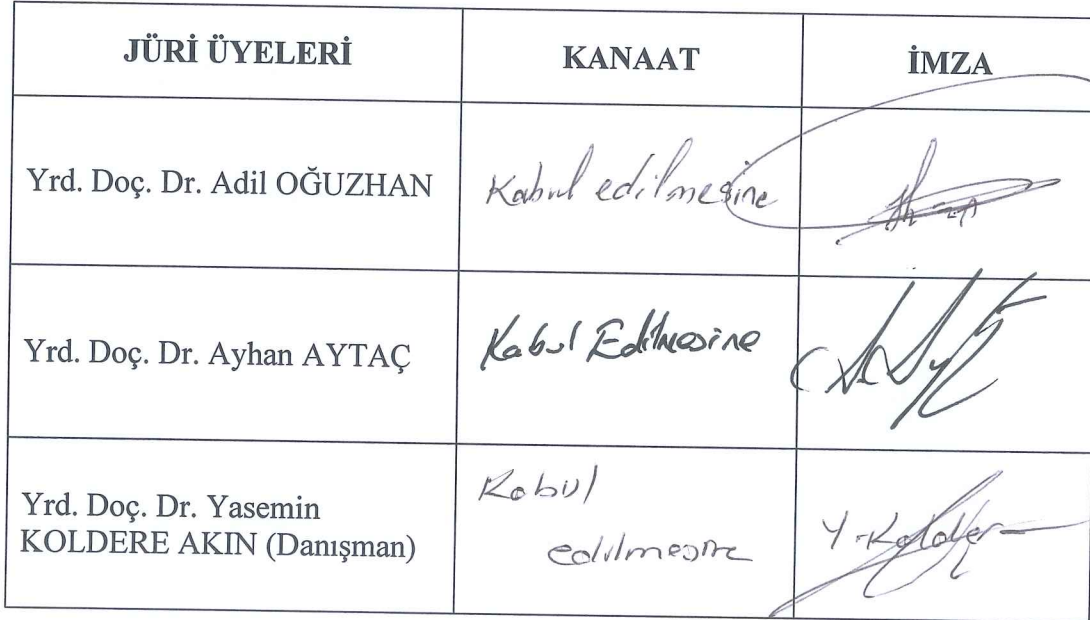 JÜRİ ÜYELERİ KANAAT İMZA
Yrd. Doç. Dr. Adil OĞUZHAN Kabul edilmesine
Yrd. Doç. Dr. Ayhan AYTAÇ Kabul Edilmesine
Yrd. Doç. Dr. Yasemin
KOLDERE AKIN (Danışman)
Kabul
edilmesine